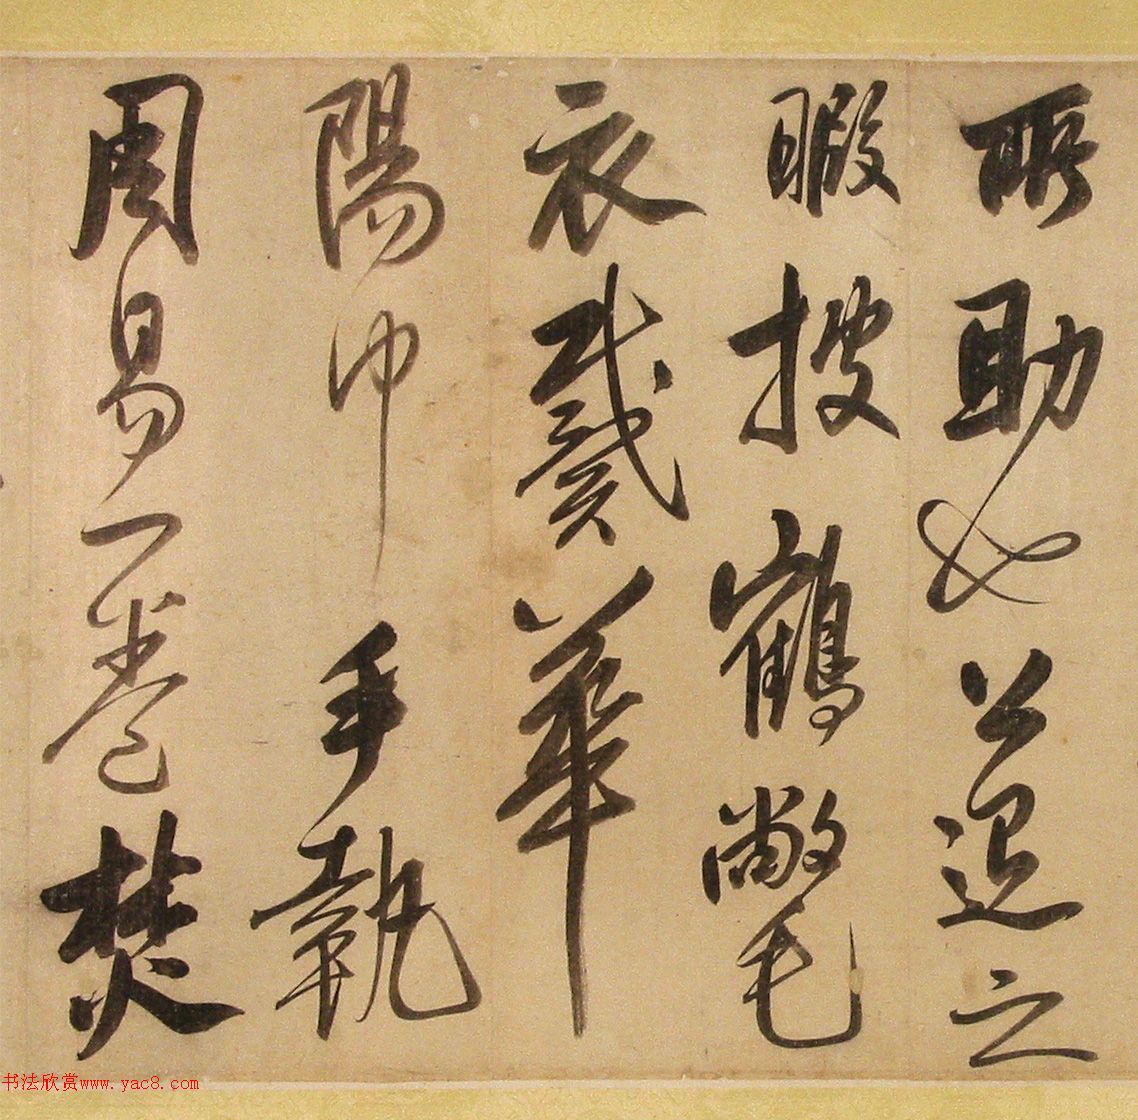 所助也公退之
暇披鶴氅
衣戴華
陽巾手執
周易一卷焚
书法欣赏www.yac8.com